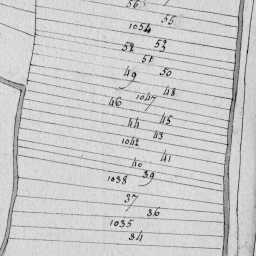 56
55
1054
53
52
51
50
49
48
1047
46
45
44
43
1042
41
40
39
1038
37
36
1035
34